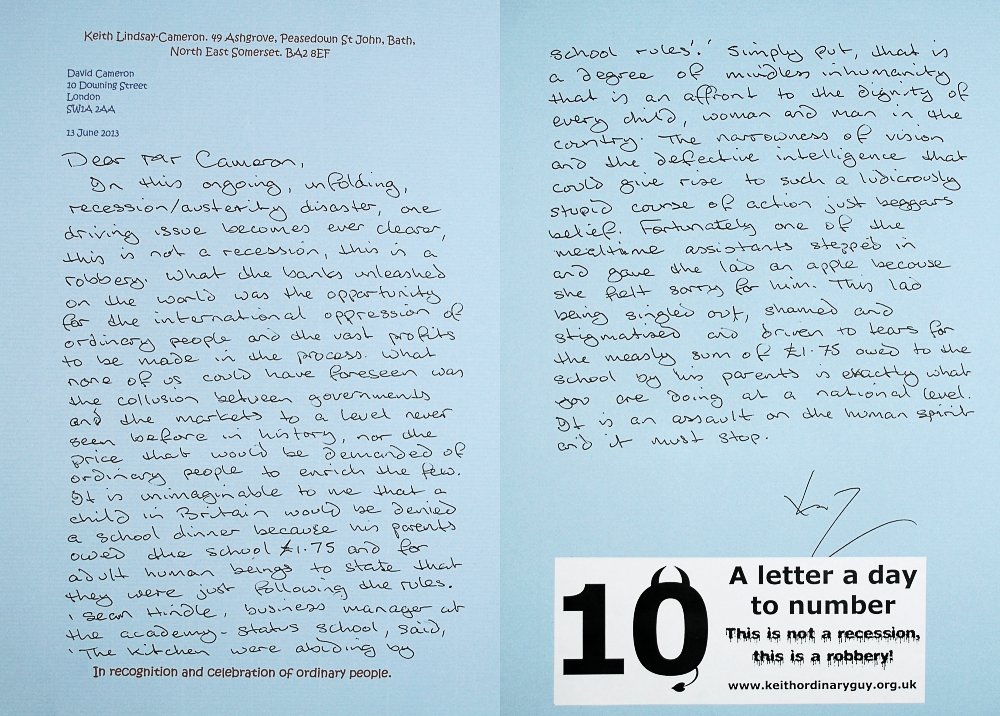 Keith Lindsay-Cameron. 49 Ashgrove, Peasedown St John, Bath,
North East Somerset. BA2 8EF
David Cameron
10 Downing Street
London
SW1A 2AA
13 June 2013
Dear Mr Cameron,
In this ongoing, unfolding,
recession/austerity disaster, one
driving issue becomes ever clearer,
this is not a recession, this is a
robbery. What the banks unleashed
on the world was the opportunity
for the international oppression of
ordinary people and the vast profits
to be made in the process. What
none of us could have foreseen was
the collusion between governments
and the markets to a level never
seen before in history, nor the
price that would be demanded of
ordinary people to enrich the few.
It is unimaginable to me that a
child in Britain would be denied
a school dinner because his parents
owed the school £1.75 and for
adult human beings to state that
they were just following the rules.
'Sean Hindle, business manager at
the academy-status school, said,
'The kitchen were abiding by
In recognition and celebration of ordinary people.
school rules'.' Simply put, that is
a degree of mindless inhumanity
that is an affront to the dignity of
every child, woman and man in the
country. The narrowness of vision
and the defective intelligence that
could give rise to such a ludicrously
stupid course of action just beggars
belief. Fortunately one of the
mealtime assistants stepped in
and gave the lad an apple because
she felt sorry for him. This lad
being singled out, shamed and
stigmatised and driven to tears for
the measly sum of £1.75 owed to the
school by his parents is exactly what
you are doing at a national level.
It is an assault on the human spirit
and it must stop.
10
A letter a day
to number
This is not a recession,
this is a robbery!
www.keithordinaryguy.org.uk